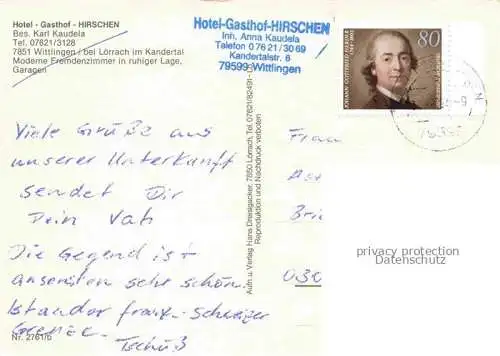 Hotel - Gasthof - HIRSCHEN
Bes. Karl Kaudela
Tel. 07621/3128
7851 Wittlingen / bei Lörrach im Kandertal
Moderne Fremdenzimmer in ruhiger Lage,
Garagen
Hotel-Gasthof-HIRSCHEN
Inh. Anna Kaudela
Telefon 07621/3069
Kandertalstr. 6
79599 Wittlingen
80
JOHANN GOTTFRIED HERDER
1744-1803
Viele Grüße aus
unserer Unterkunft
sendet Dir
Dein Vati
Die Gegend ist
ansonsten sehr schön.
Standort franz.-schweizer
Grenze.
Tschüß
Nr. 2761/b
Aufn. u. Verlag Hans Dreisigacker, 7850 Lörrach, Tel. 07621/82491
Reproduktion und Nachdruck verboten
Frau
privacy protection
Datenschutz